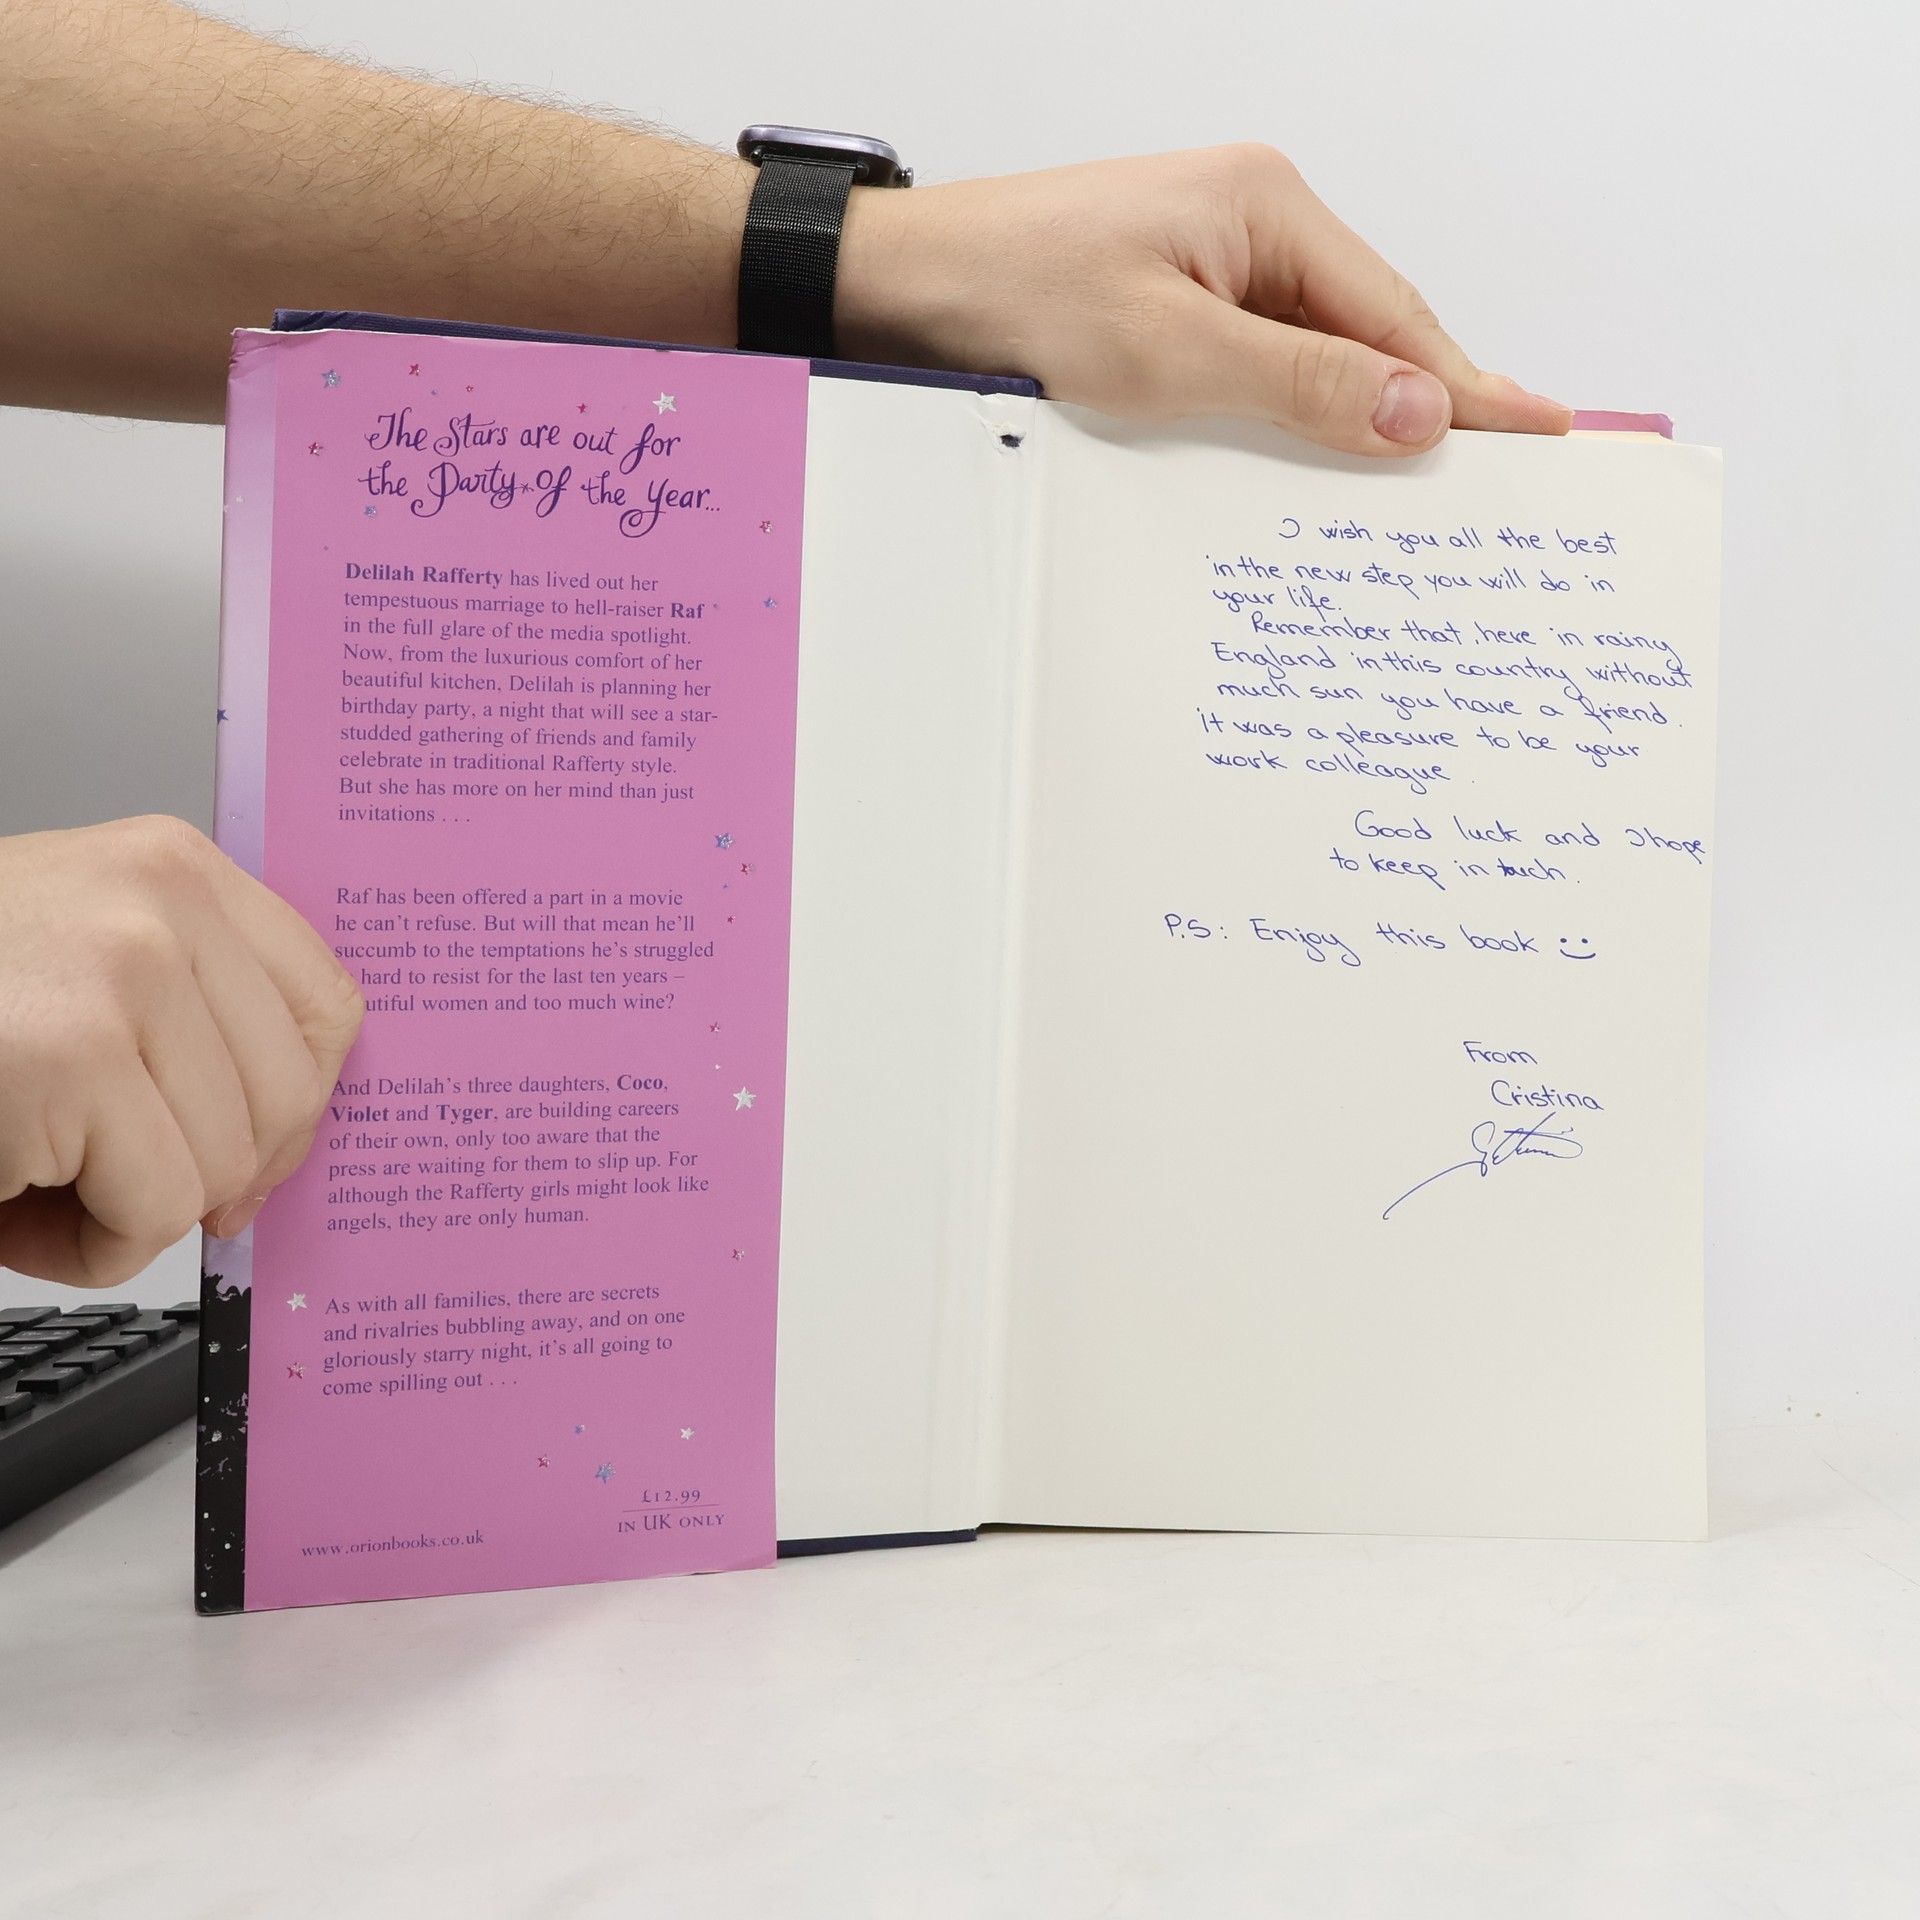 The Stars are out for
the Party of the Year...
Delilah Rafferty has lived out her
tempestuous marriage to hell-raiser Raf
in the full glare of the media spotlight.
Now, from the luxurious comfort of her
beautiful kitchen, Delilah is planning her
birthday party, a night that will see a star-
studded gathering of friends and family
celebrate in traditional Rafferty style.
But she has more on her mind than just
invitations . . .
Raf has been offered a part in a movie
he can't refuse. But will that mean he'll
succumb to the temptations he's struggled
hard to resist for the last ten years –
utiful women and too much wine?
And Delilah's three daughters, Coco,
Violet and Tyger, are building careers
of their own, only too aware that the
press are waiting for them to slip up. For
although the Rafferty girls might look like
angels, they are only human.
As with all families, there are secrets
and rivalries bubbling away, and on one
gloriously starry night, it's all going to
come spilling out . . .
£12.99
IN UK ONLY
www.orionbooks.co.uk
I wish you all the best
in the new step you will do in
your life.
Remember that, here in rainy
England in this country without
much sun you have a friend.
it was a pleasure to be your
work colleague.
Good luck and I hope
to keep in touch.
P.S: Enjoy this book :)
From
Cristina